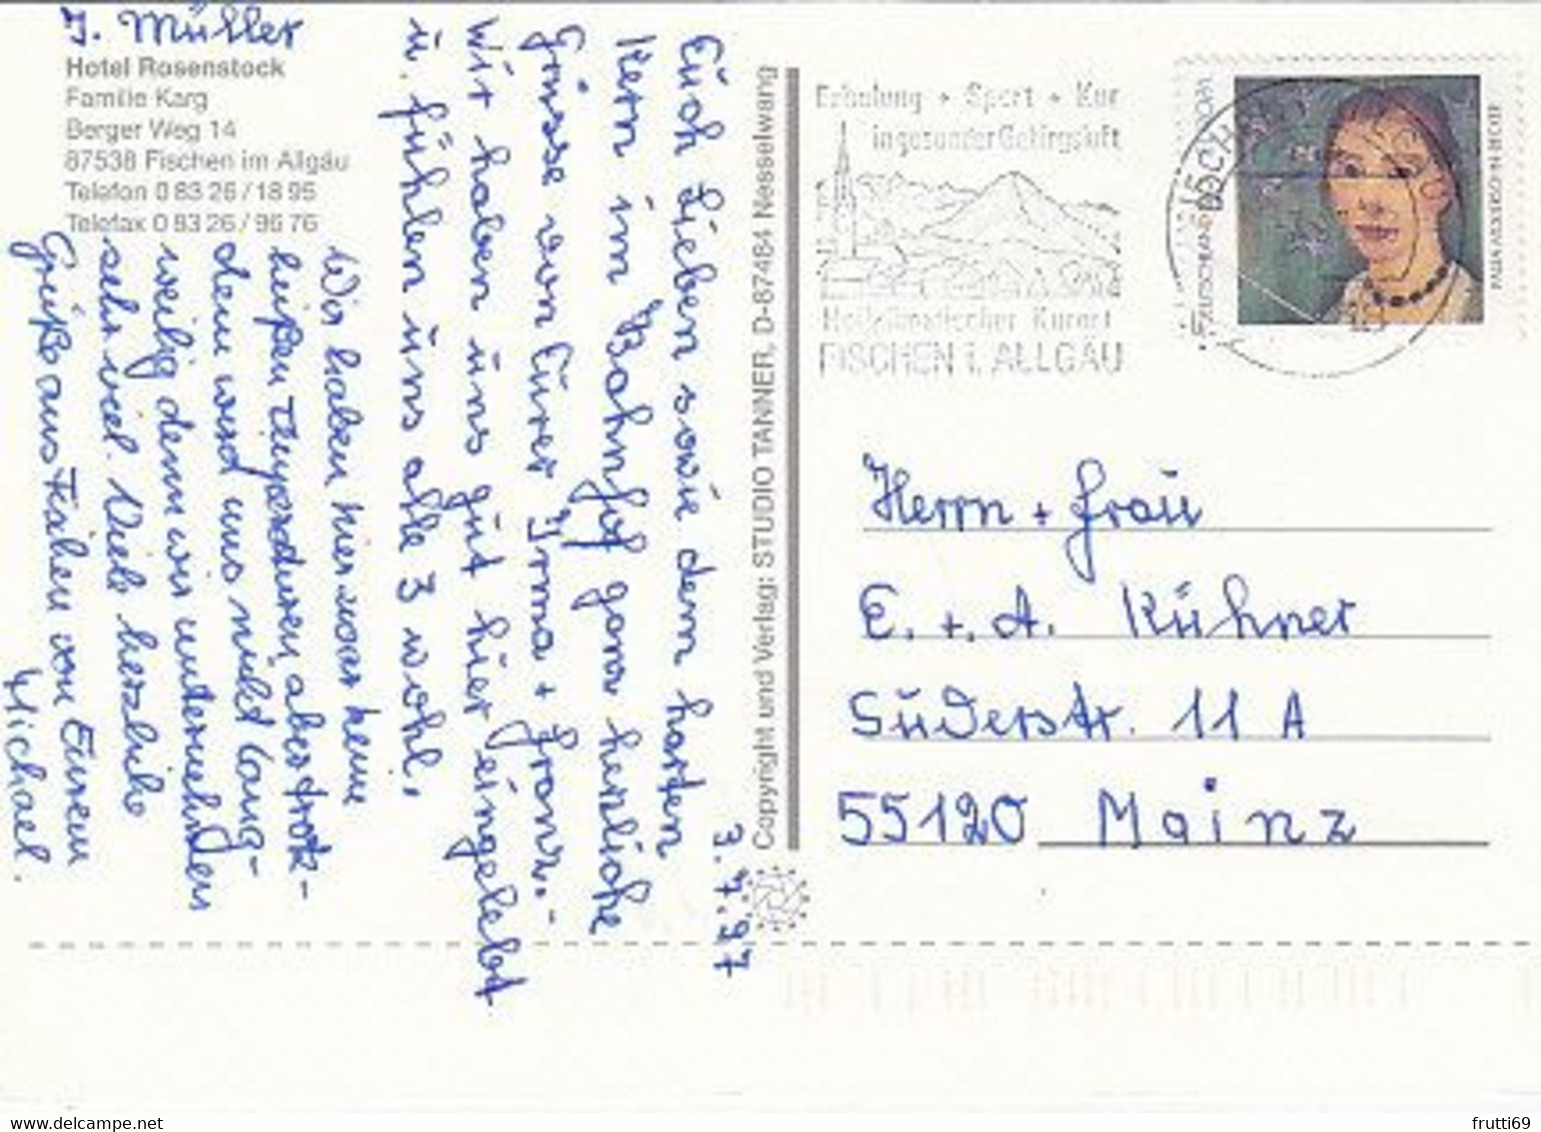 J. Müller
Hotel Rosenstock
Familie Karg
Berger Weg 14
87538 Fischen im Allgäu
Telefon 0 83 26 / 18 95
Telefax 0 83 26 / 96 76
3.7.97
Euch Lieben sowie dem harten
Kern im Bahnhof ganz herzliche
Grüsse von Eurer Irma + Franz.
Wir haben uns gut hier eingelebt
u. fühlen uns alle 3 wohl.
Wir haben hier zwar keine
heißen Temperaturen aber trotz-
dem wird uns nicht lang-
weilig denn wir unternehmen
sehr viel. Viele herzliche
Grüße aus Fischen von Eurem
Michael.
Copyright und Verlag: STUDIO TANNER, D-87484 Nesselwang
Erholung + Sport + Kur
in gesunder Gebirgsluft
Heilklimatischer Kurort
FISCHEN i. ALLGÄU
DEUTSCHLAND
EUROPA
PAULA MODERSOHN-BECKER
Herrn + Frau
E. + A. Kühner
Süderstr. 11 A
55120 Mainz
frutti69